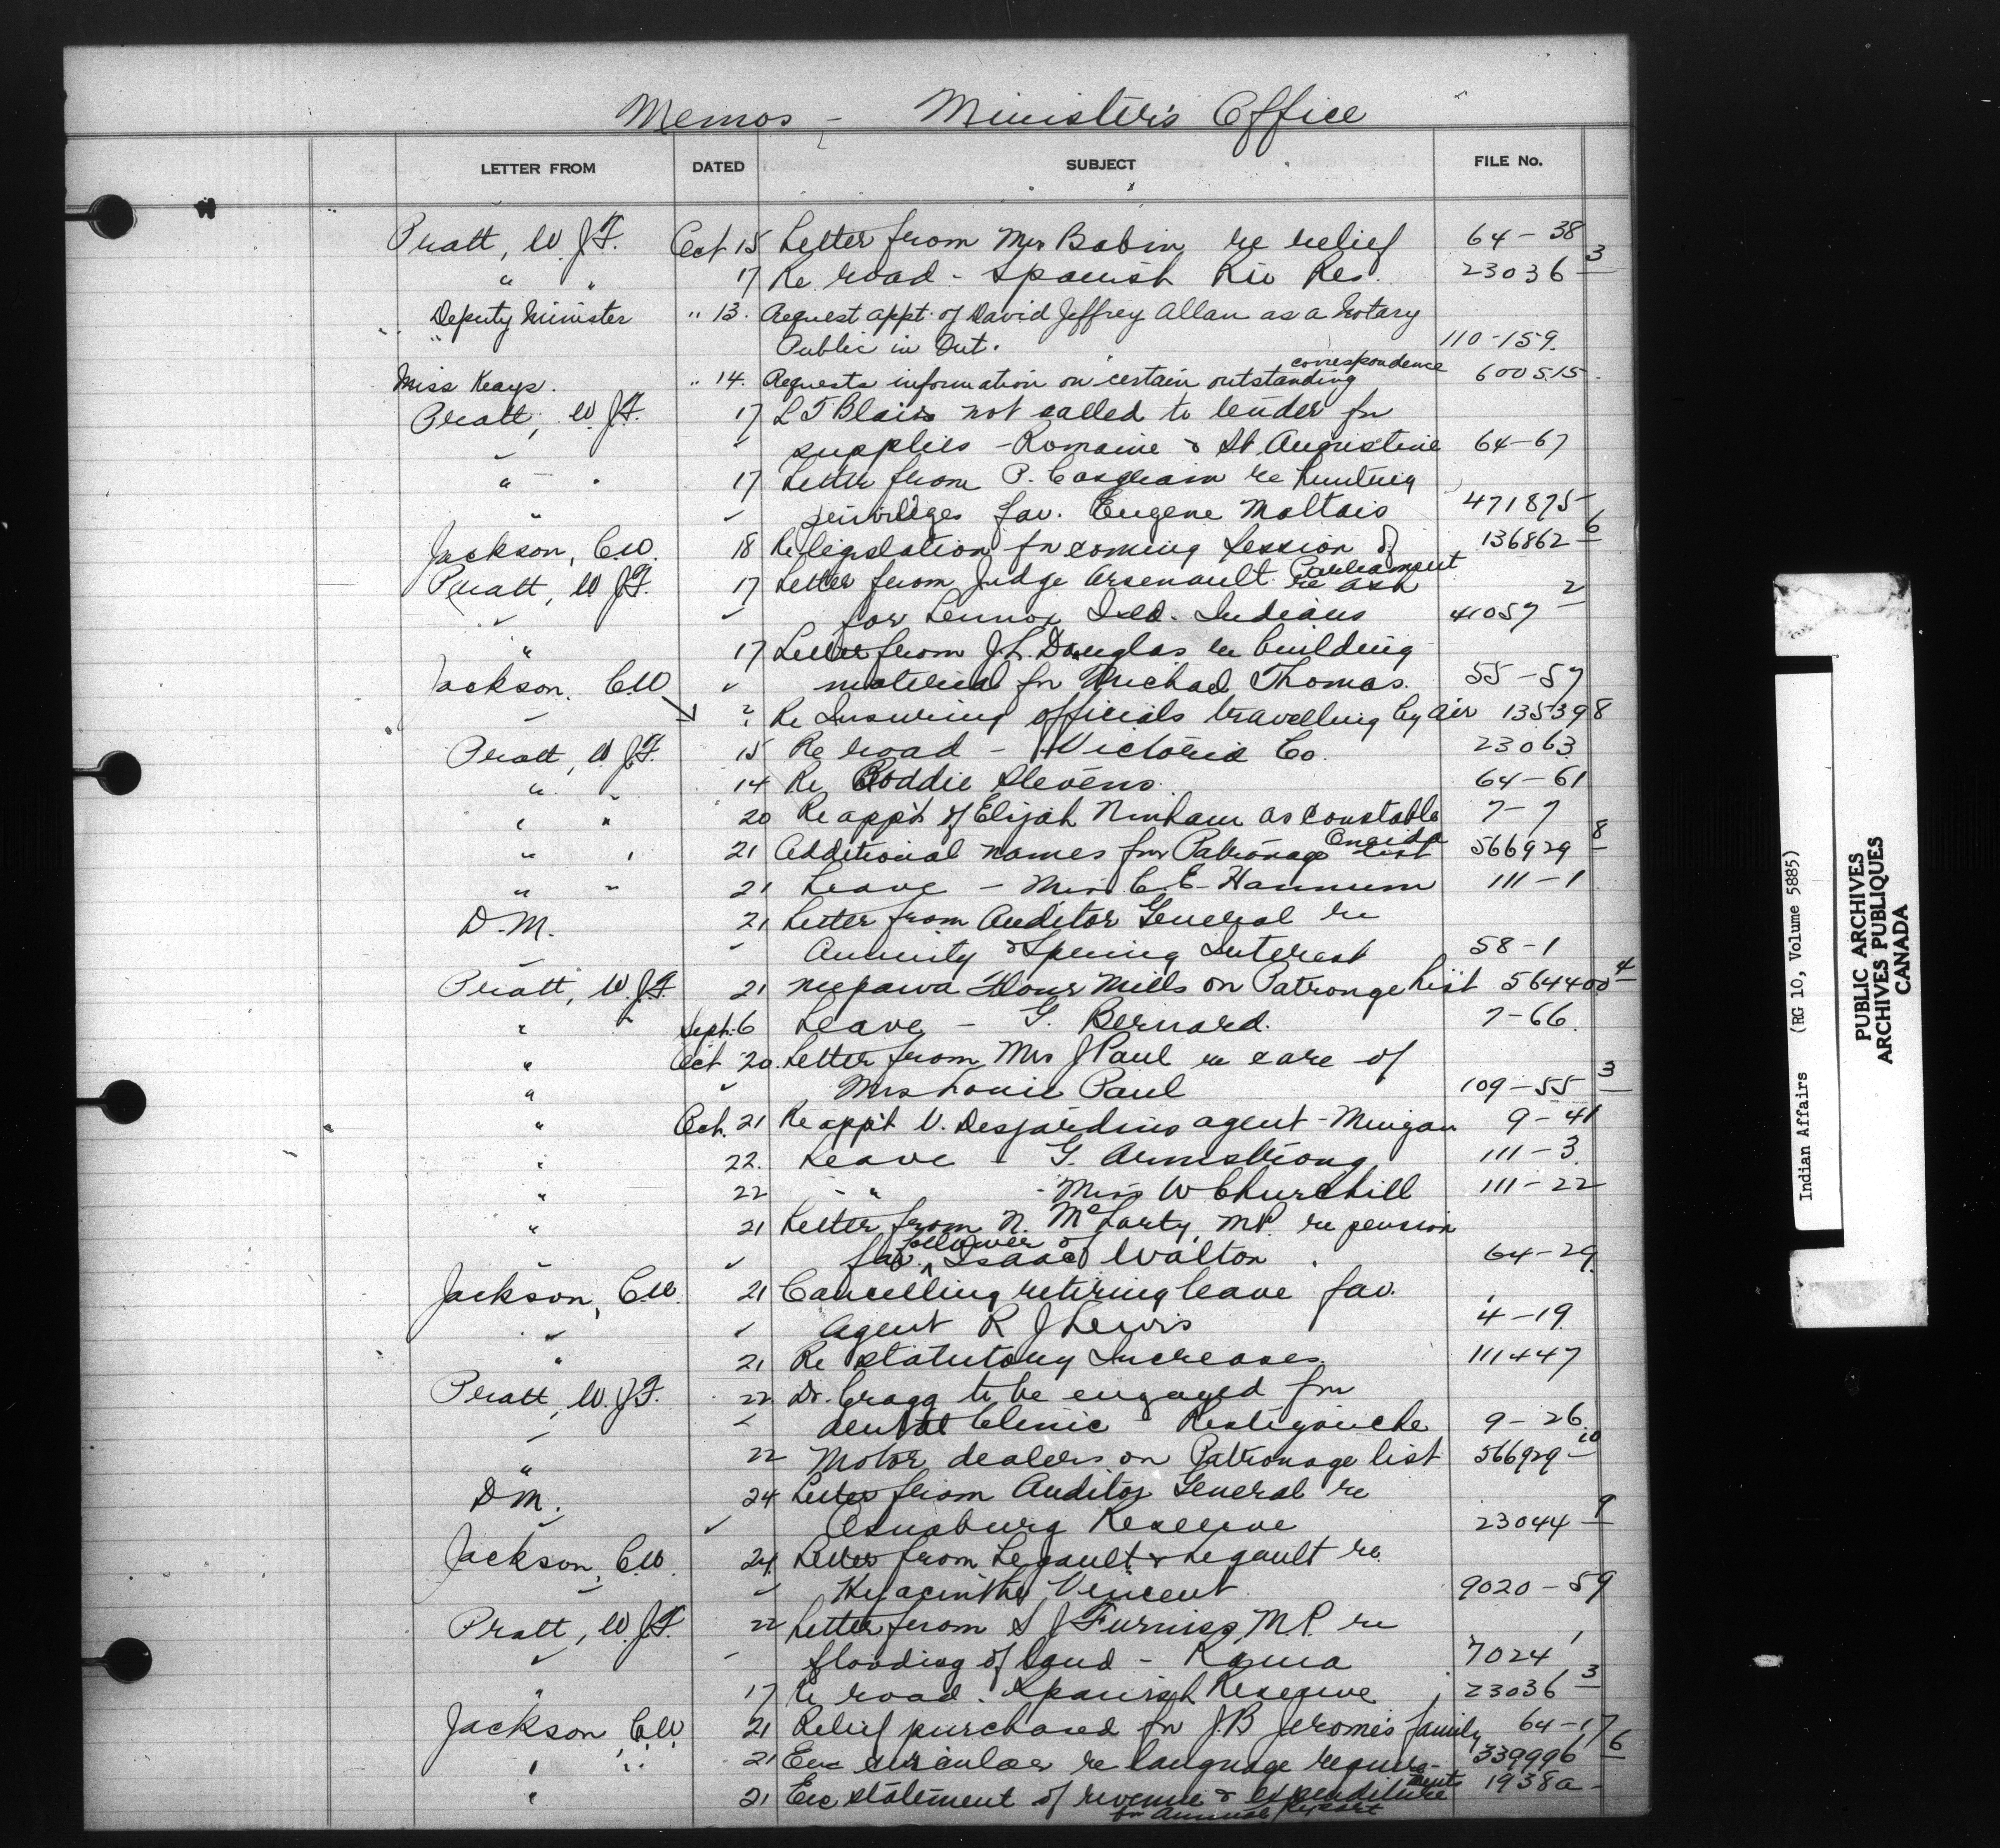 Memos - Minister's Office
LETTER FROM DATED SUBJECT FILE No.
Pratt, W.J.F. Oct 15 Letter from Mrs Babin re relief 64-38
" " 17 Re road - Spanish Riv Res. 23036-3
Deputy Minister " 13. Request appt. of David Jeffrey Allan as a Notary
" Public in Ont. 110-159.
Miss Keays. " 14. Requests information on certain outstanding correspondence 600515.
Pratt, W.J.F. 17 L T Blais not called to tender for
supplies - Romaine & St Augustine 64-67
" - " 17 Letter from P. Casgrain re hunting
" privileges fav. Eugene Maltais 471875
Jackson, C.W. 18 Re legislation for coming Session of Parliament 136862-6
Pratt, W.J.F. 17 Letter from Judge Arsenault re ash
for Lennox Isld. Indians 41057-2
" 17 Letter from J.L. Douglas re building
material for Michael Thomas. 55-57
Jackson, C.W. ? Re Insuring officials travelling by air 135398
Pratt, W.J.F. 15 Re road - Victoria Co. 23063
" " 14 Re Roddie Stevens. 64-61
" " 20 Re appt of Elijah Ninham as Constable Oneida 7-7
" " 21 Additional names for Patronage List 566929-8
" " 21 Leave - Miss C.E. Hannum 111-1
D.M. 21 Letter from Auditor General re
Annuity & Spring Interest 58-1
Pratt, W.J.F. 21 Neepawa Flour Mills on Patronge List 564400-4
" " Sept. 6 Leave - G. Bernard. 7-66.
" Oct 20. Letter from Mrs J Paul re care of
" Mrs Louis Paul 109-55-3
" Oct. 21 Re appt V. Desjardins agent - Mingan 9-41
" 22. Leave - G. Armstrong 111-3.
" 22 - " - Miss W Churchill 111-22
" 21 Letter from N. McLarty, M.P. re pension
fav. follower of Isaac Walton. 64-29
Jackson, C.W. 21 Cancelling retiring leave fav.
Agent R J Lewis 4-19
" 21 Re Statutory Increases 111447
Pratt, W.J.F. 22 Dr. Cragg to be engaged for
dental Clinic Restigouche 9-26.
" 22 Motor dealers on Patronage list 566929-10
D.M. 24 Letter from Auditor General re
Osnaburg Reserve 23044-9
Jackson, C.W. 24 Letter from Legault & Legault re.
Hyacinthe Vincent 9020-59
Pratt, W.J.F. 22 Letter from S J Furniss, M.P. re
flooding of land - Rama 7024-1
" 17 Re road - Spanish Reserve 23036-3
Jackson C.W. 21 Relief purchased for J.B Jerome's family 64-17
" " 21 Enc circular re language requirements 339996-6
" 21 Enc statement of revenue & expenditure 1938a-
for Annual Report
Indian Affairs (RG 10, Volume 5885)
PUBLIC ARCHIVES
ARCHIVES PUBLIQUES
CANADA